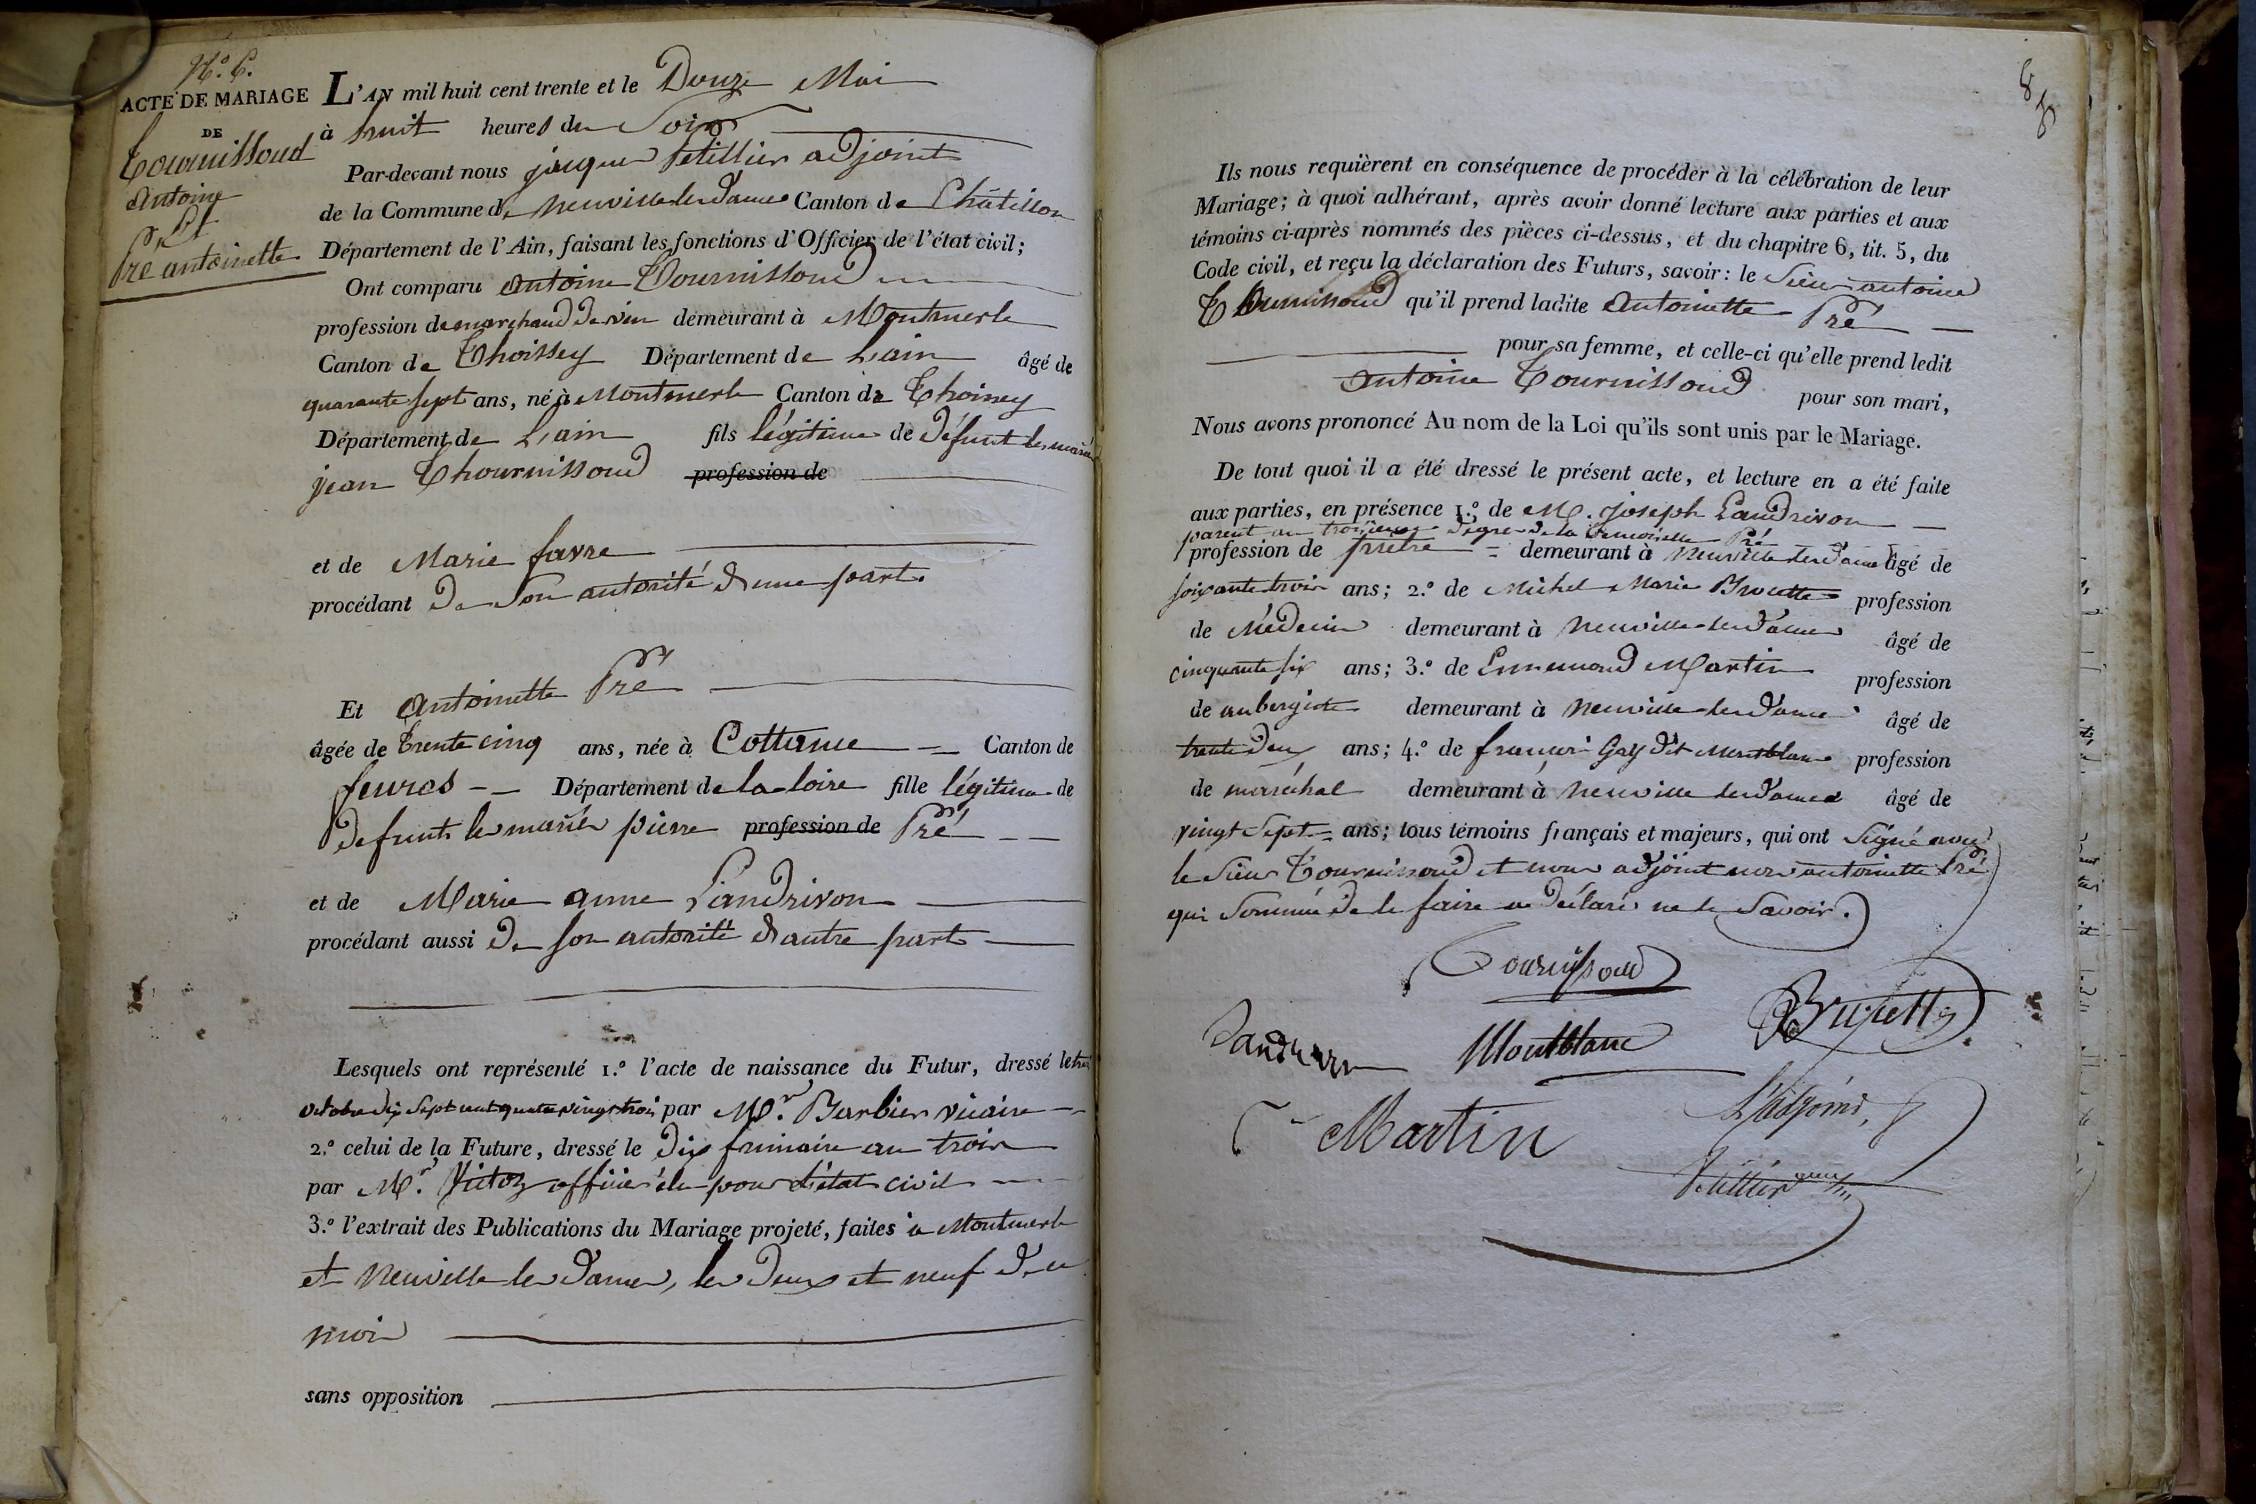 N.o 6.
ACTE DE MARIAGE
DE
Tournissoud
Antoine
Et
Pré antoinette
L'AN mil huit cent trente et le Douze Mai
à huit heures du Soir
Par-devant nous jacques Petillier adjoint
de la Commune de neuville les dames Canton de Châtillon
Département de l'Ain, faisant les fonctions d'Officier de l'état civil;
Ont comparu antoine Tournissoud
profession de marchand de vin demeurant à Montmerle
Canton de Thoissey Département de L'ain âgé de
quarante sept ans, né à Montmerle Canton de Thoissey
Département de L'ain fils légitime de défunt les mariés
jean Thournissoud profession de
et de Marie favre
procédant de Son autorité d'une part.
Et antoinette Pré
âgée de trente cinq ans, née à Cottance Canton de
feuros Département de la loire fille légitime de
defunts les mariés pierre profession de Pré
et de Marie anne Landrivon
procédant aussi de son autorité d'autre part
Lesquels ont représenté 1.o l'acte de naissance du Futur, dressé le trois
octobre dix sept cent quatre vingt trois par M.r Barbier vicaire
2.o celui de la Future, dressé le dix frimaire an trois
par M.r officier élu pour l'état civil
3.o l'extrait des Publications du Mariage projeté, faites à Montmerle
et Neuville les dames, les deux et neuf de ce
mois
sans opposition
Ils nous requièrent en conséquence de procéder à la célébration de leur
Mariage; à quoi adhérant, après avoir donné lecture aux parties et aux
témoins ci-après nommés des pièces ci-dessus, et du chapitre 6, tit. 5, du
Code civil, et reçu la déclaration des Futurs, savoir: le Sieur antoine
Tournissoud qu'il prend ladite antoinette Pré
pour sa femme, et celle-ci qu'elle prend ledit
antoine Tournissoud pour son mari,
Nous avons prononcé Au nom de la Loi qu'ils sont unis par le Mariage.
De tout quoi il a été dressé le présent acte, et lecture en a été faite
aux parties, en présence 1.o de M. joseph Landrivon
parent au troisième degré de la demoiselle Pré
profession de prêtre demeurant à neuville les dames âgé de
soixante trois ans; 2.o de Michel Marie profession
de Médecin demeurant à neuville les dames âgé de
cinquante six ans; 3.o de Ennemond Martin profession
de aubergiste demeurant à neuville les dames âgé de
trente deux ans; 4.o de françois Gay dit Montblanc profession
de maréchal demeurant à neuville les dames âgé de
vingt Sept ans; tous témoins français et majeurs, qui ont Signé avec
le Sieur Tournissoud et nous adjoint non antoinette Pré
qui Sommée de le faire a déclaré ne le Savoir.
Tournissoud
Landrivon Montblanc
Martin L'adjoint,
Petillier